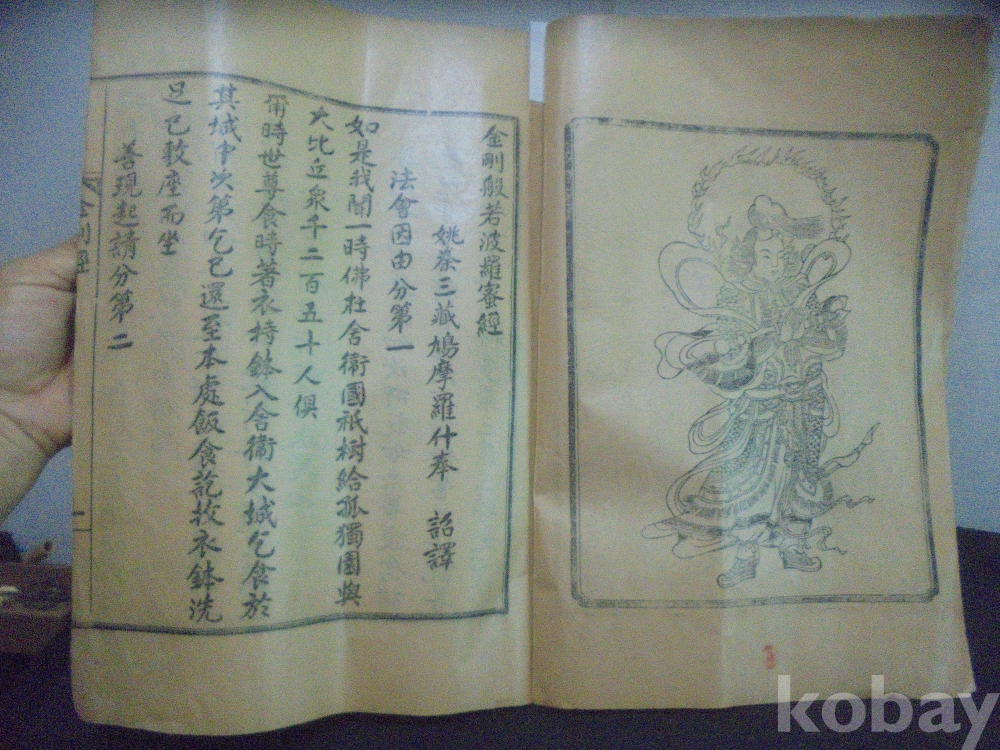 金剛般若波羅蜜經
姚秦三藏鳩摩羅什奉 詔譯
法會因由分第一
如是我聞一時佛在舍衛國祇树給孤獨園與
大比丘衆千二百五十人俱
爾時世尊食時著衣持鉢入舍衛大城乞食於
其城中次第乞已還至本處飯食訖收衣鉢洗
足已敷座而坐
善現起請分第二
金剛經
一
kobay